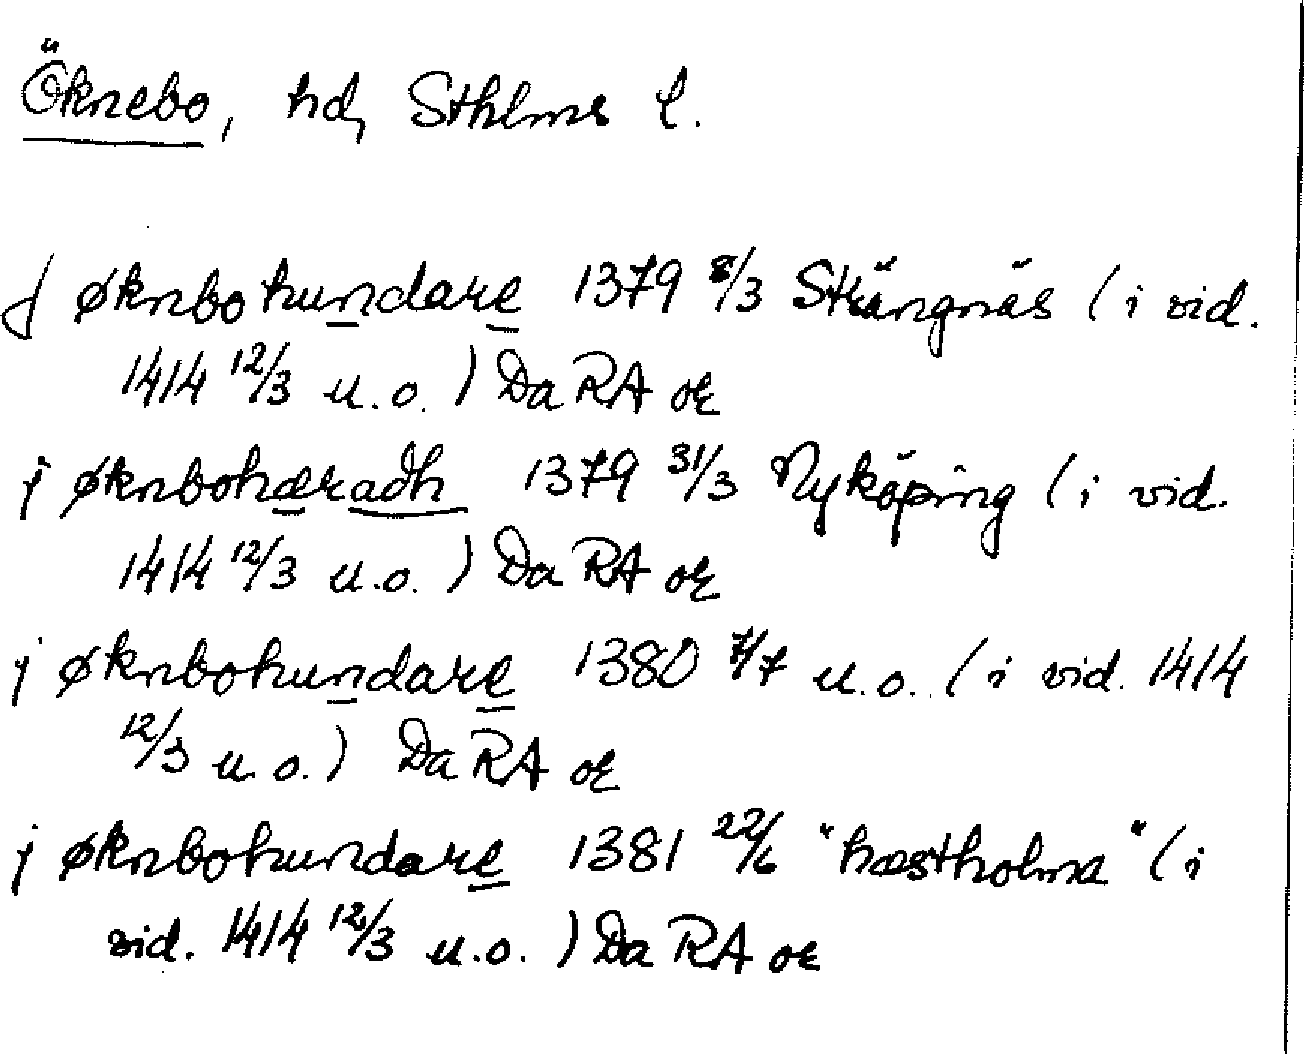 Öknebo, hd, Sthlms l.
J øknbohundare 1379 8/3 Strängnäs (i vid.
1414 12/3 u.o.) Da RA or
j øknbohæradh 1379 31/3 Nyköping (i vid.
1414 12/3 u.o.) Da RA or
j øknbohundare 1380 7/7 u.o. (i vid. 1414
12/3 u.o.) Da RA or
j øknbohundare 1381 22/6 "hæstholma" (i
vid. 1414 12/3 u.o.) Da RA or